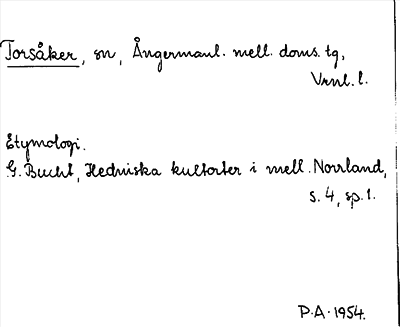 Torsåker, sn, Ångermanl. mell. doms. tg,
Vrnl. l.
Etymologi.
G. Bucht, Hedniska kultorter i mell. Norrland,
s. 4, sp. 1.
P.A. 1954.